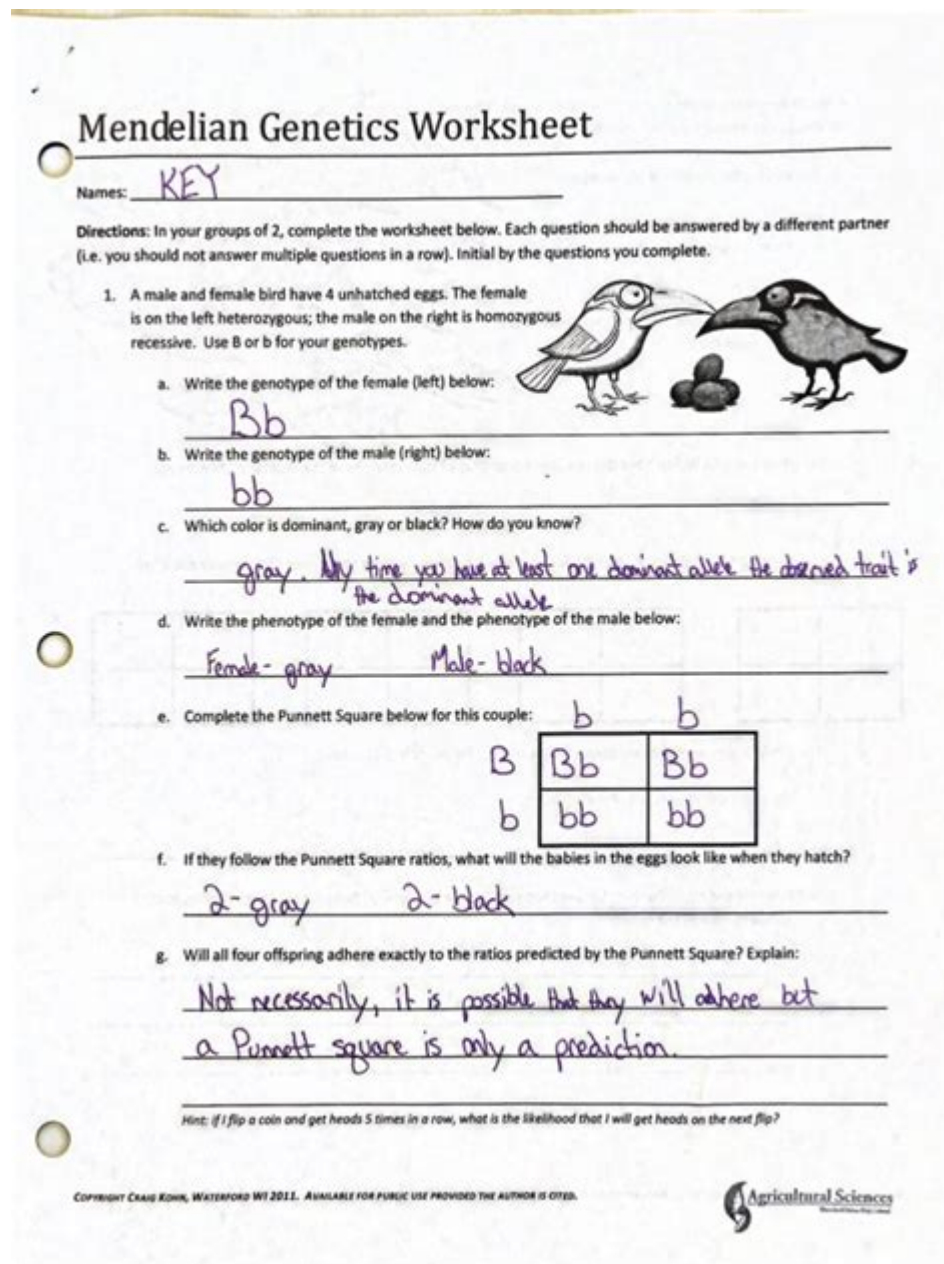 Mendelian Genetics Worksheet
Names: KEY
Directions: In your groups of 2, complete the worksheet below. Each question should be answered by a different partner
(i.e. you should not answer multiple questions in a row). Initial by the questions you complete.
1. A male and female bird have 4 unhatched eggs. The female
is on the left heterozygous; the male on the right is homozygous
recessive. Use B or b for your genotypes.
a. Write the genotype of the female (left) below:
Bb
b. Write the genotype of the male (right) below:
bb
c. Which color is dominant, gray or black? How do you know?
gray. Any time you have at least one dominant allele the observed trait is
the dominant allele
d. Write the phenotype of the female and the phenotype of the male below:
Female- gray Male- black
e. Complete the Punnett Square below for this couple: b b
B Bb Bb
b bb bb
f. If they follow the Punnett Square ratios, what will the babies in the eggs look like when they hatch?
2- gray 2- black
g. Will all four offspring adhere exactly to the ratios predicted by the Punnett Square? Explain:
Not necessarily, it is possible that they will adhere but
a Punnett square is only a prediction.
Hint: if I flip a coin and get heads 5 times in a row, what is the likelihood that I will get heads on the next flip?
COPYRIGHT CRAIG KOHN, WATERFORD WI 2011. AVAILABLE FOR PUBLIC USE PROVIDED THE AUTHOR IS CITED.
Agricultural Sciences